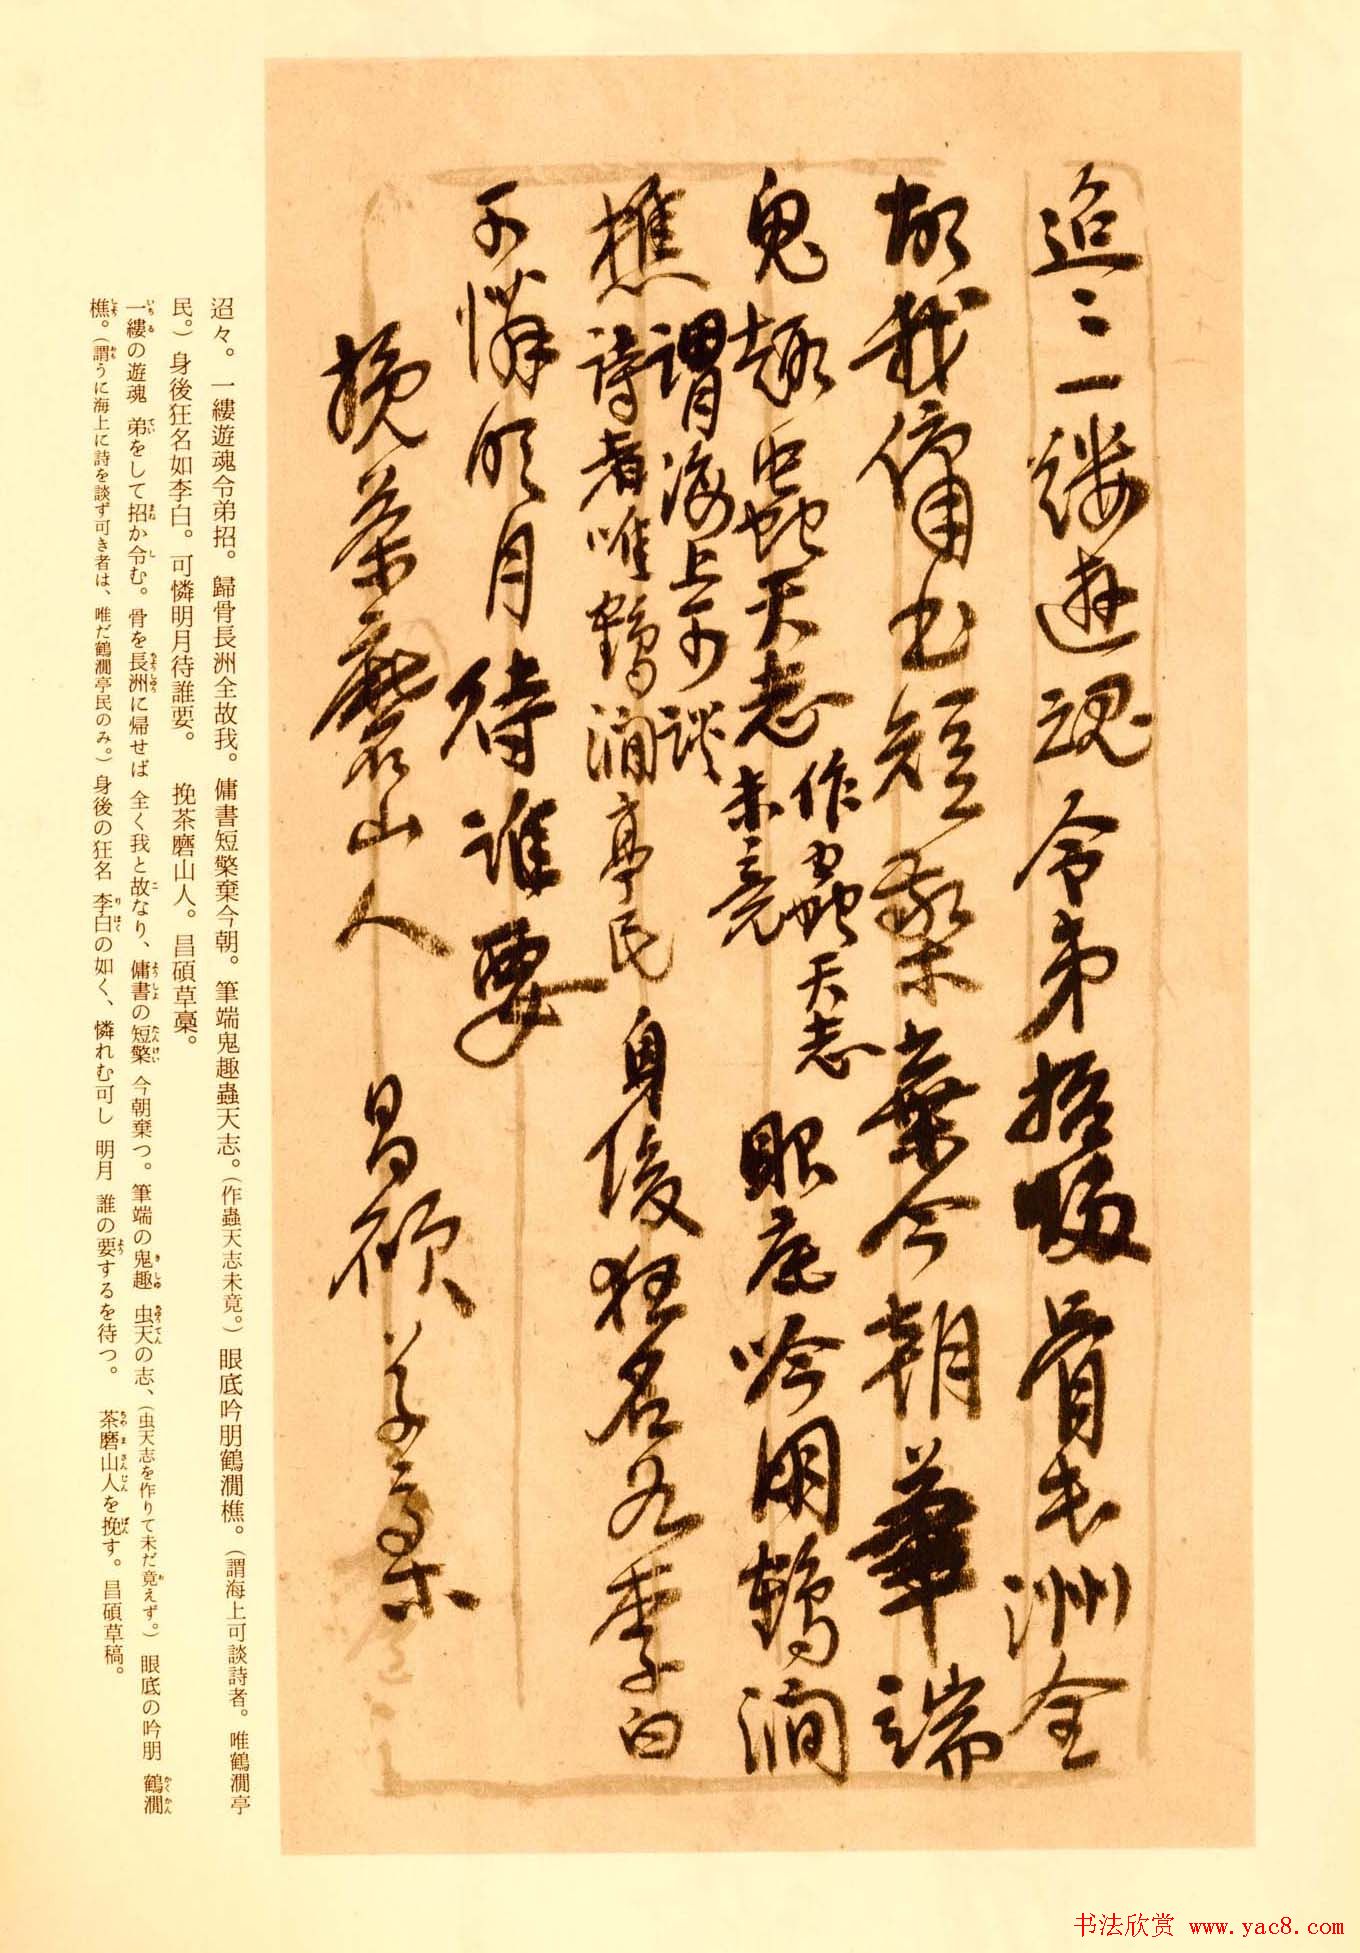 迢〻一縷遊魂令弟招歸骨長洲全
故我傭書短檠棄今朝筆端
鬼趣蟲天志
作蟲天志
未竟
眼底吟朋鶴澗
樵
謂海上可談
詩者唯鶴澗亭民
身後狂名如李白
可憐明月待誰要
挽茶磨山人
昌碩草稾
迢々。一縷遊魂令弟招。歸骨長洲全故我。傭書短檠棄今朝。筆端鬼趣蟲天志。(作蟲天志未竟。)眼底吟朋鶴澗樵。(謂海上可談詩者。唯鶴澗亭
民。)身後狂名如李白。可憐明月待誰要。 挽茶磨山人。昌碩草稾。
一縷の遊魂 弟をして招か令む。骨を長洲に帰せば 全く我と故なり、傭書の短檠 今朝棄つ。筆端の鬼趣 虫天の志、(虫天志を作りて未だ竟えず。)眼底の吟朋 鶴澗
樵。(謂うに海上に詩を談ず可き者は、唯だ鶴澗亭民のみ。)身後の狂名 李白の如く、憐れむ可し 明月 誰の要するを待つ。 茶磨山人を挽す。昌碩草稿。
书法欣赏 www.yac8.com